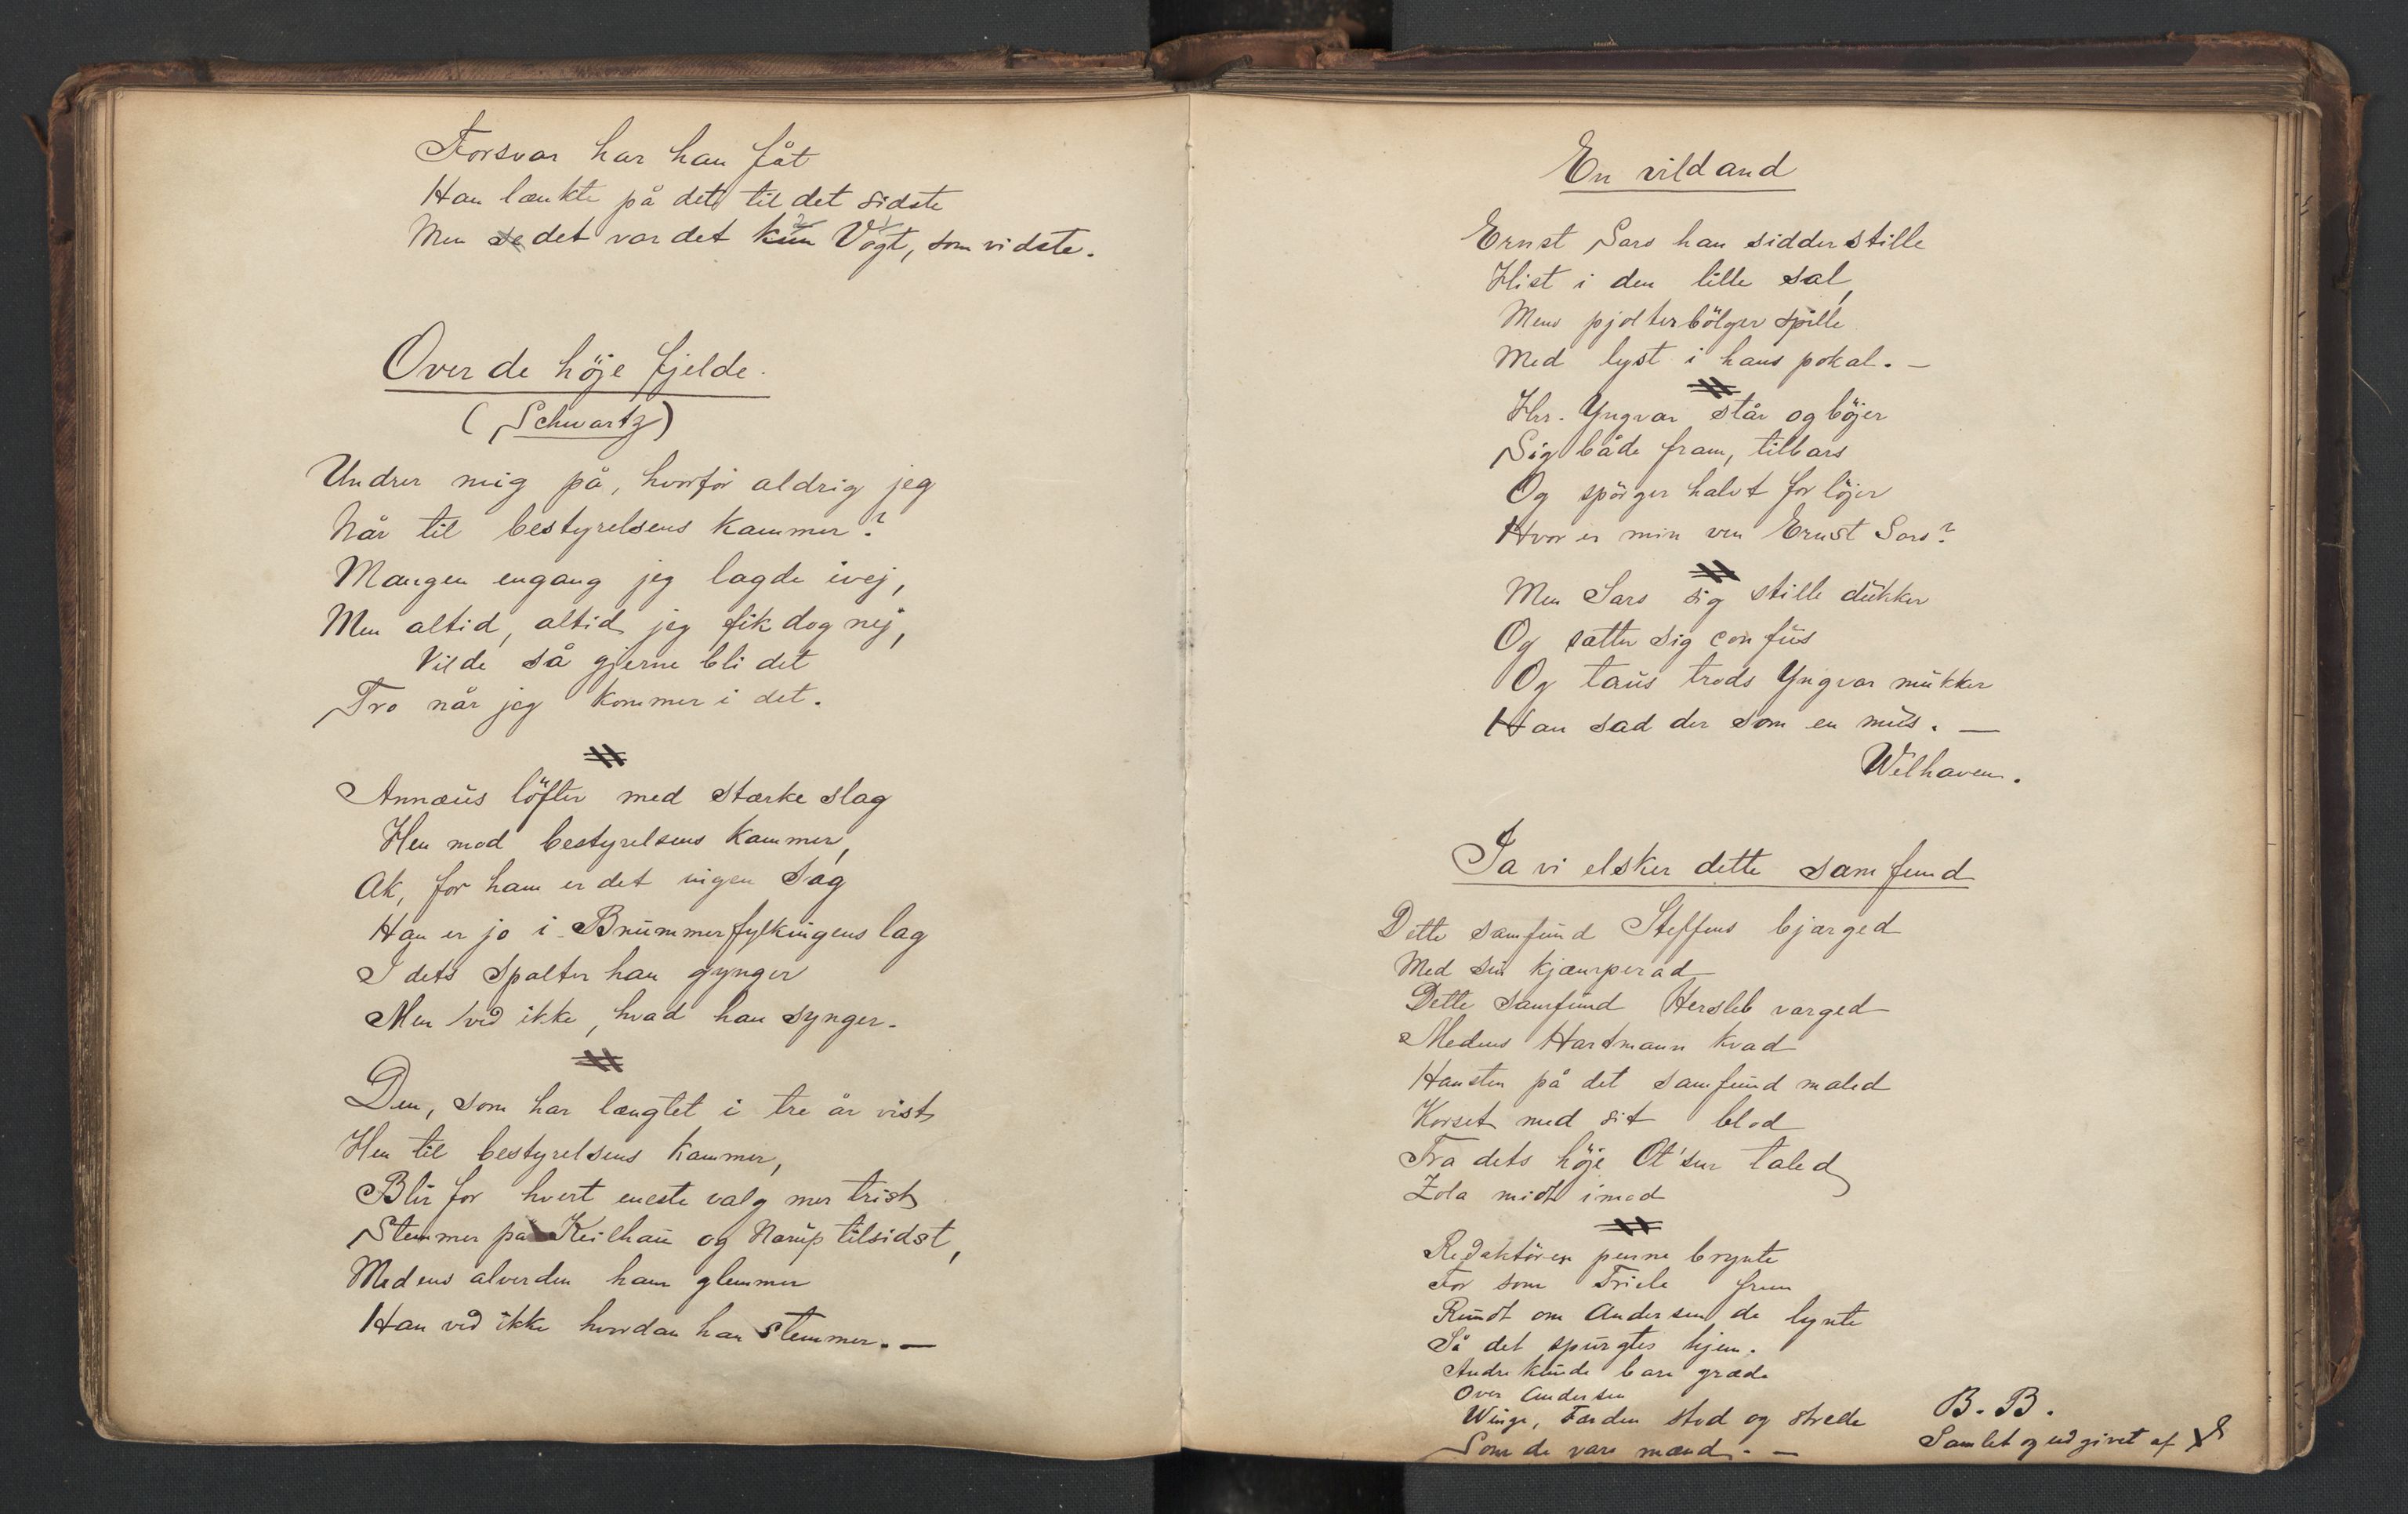 Forsvar har han fåt
Han lænkte på det til det sidste
Men se det var det kun Vogt, som vidste.
Over de höje fjelde.
(Schwartz)
Undrer mig på, hvorfor aldrig jeg
Når til bestyrelsens kammer?
Mangen engang jeg lagde ivej,
Men altid, altid jeg fik dog nej,
Vilde så gjerne bli det
Tro når jeg kommer i det.
Annæus löfter med stærke slag
Hen mod bestyrelsens kammer,
Ak, for ham er det ingen sag
Han er jo i Brummerfylkingens lag
I dets spalter han gynger
Men ved ikke, hvad han synger.
Den, som har længtet i tre år vist
Hen til bestyrelsens kammer,
Blir for hvert eneste valg mer trist
Stemmer på Keilhau og Narup tilsidst,
Medens alverden ham glemmer
Han ved ikke hvordan han stemmer. —
En vildand
Ernst Sars han sidder stille
Hist i den lille sal,
Mens pjolterbölger spille
Med lyst i hans pokal. —
Hr. Yngvar står og böjer
Sig både fram, tilbars
Og spörger halvt for löjer
Hvor er min ven Ernst Sars?
Men Sars sig stille dukker
Og satter sig confus
Og taus trods Yngvar mukker
Han sad der som en mus. —
Welhaven.
Ja vi elsker dette samfund
Dette samfund Steffens bjærged
Med sin kjæmperad
Dette samfund Hersleb værged
Medens Hartmann kvad
Hansten på det samfund maled
Korset med sit blod
Fra dets höje Ot'sen taled
Zola midt imod
Redaktören penne brynte
For som Triele frem
Rundt om Andersen de lynte
Så det spurgtes hjem.
Andre kunde bare græde
Over Andersen
Winge, Færden stod og strede
Som de vare mænd. —
B. B.
Samlet og udgivet af